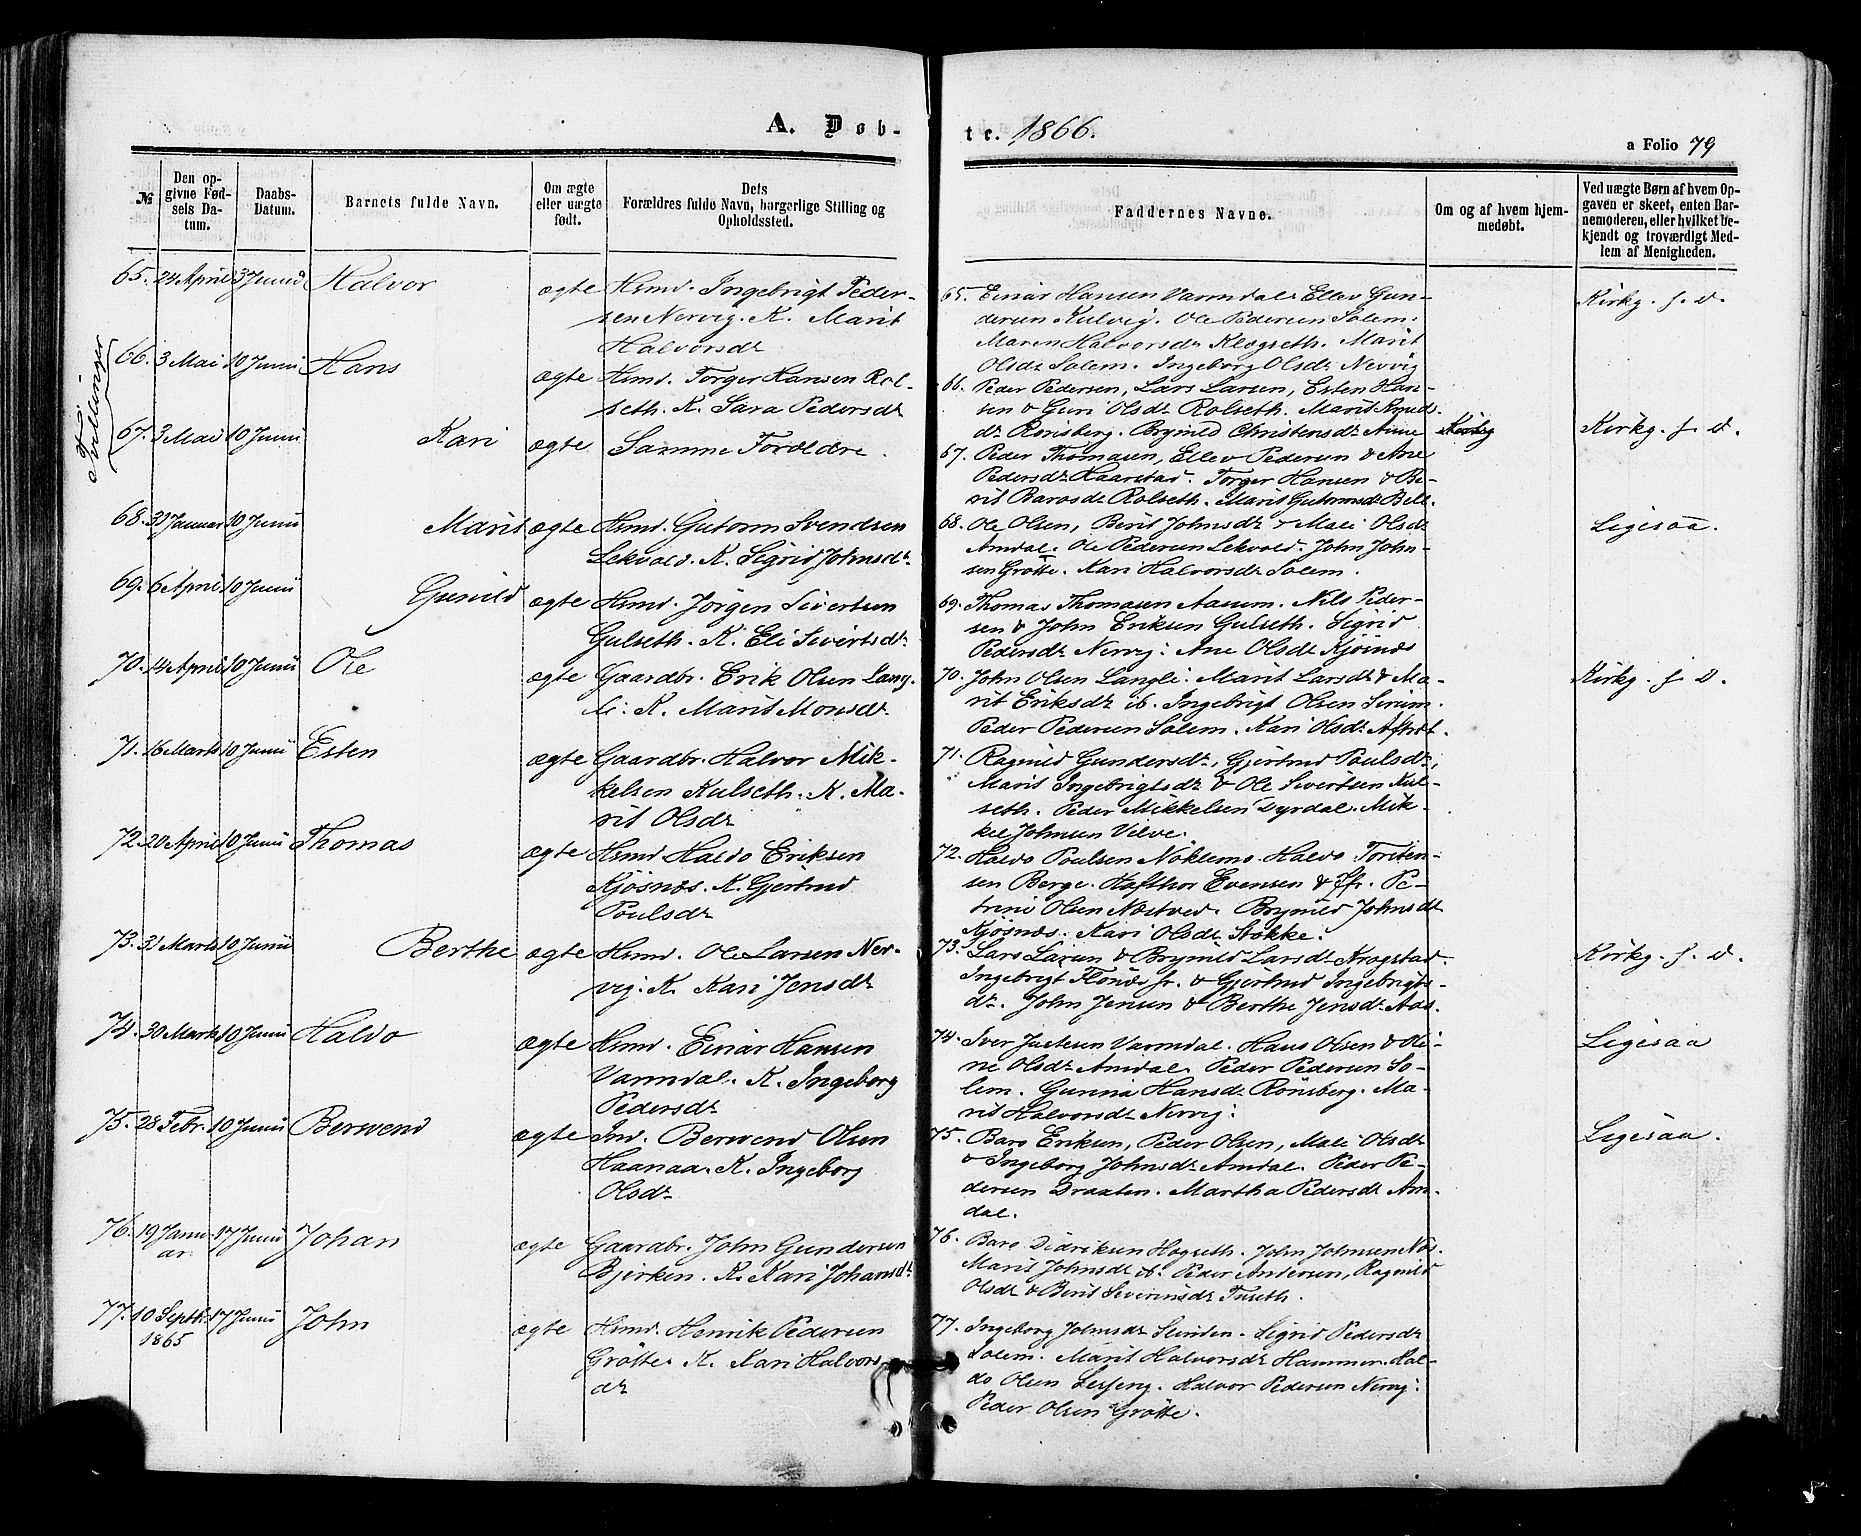 A. Døb-
te. 1866.
a Folio 79
№
Den op-
givne Fød-
sels Da-
tum.
Daabs-
Datum.
Barnets fulde Navn.
Om ægte
eller uægte
født.
Dets
Forældres fulde Navn, borgerlige Stilling og
Opholdssted.
Faddernes Navne.
Om og af hvem hjem-
medøbt.
Ved uægte Børn af hvem Op-
gaven er skeet, enten Bar-
nemoderen, eller hvilket be-
kjendt og troværdigt Med-
lem af Menigheden.
65. 24 April 3 Junii Halvor ægte Hsmd. Ingebrigt Peder-
sen Nervig. K. Marit
Halvorsdr
65. Einar Hansen Varmdal. Ellev Gun-
dersen Kulvig. Ole Pedersen Solem.
Maren Halvorsdr Klegseth. Marit
Olsdr Solem. Ingeborg Olsdr Nervig
Kirkg. f. d.
Tvillinger
66. 3 Mai 10 Junii Hans ægte Hsmd. Torger Hansen Rol-
seth. K. Sara Pedersdr
66. Peder Pedersen, Lars Larsen, Esten Han-
sen & Guri Olsdr Rolseth. Marit Knuds-
dr Rønsberg. Brynild Christensdr Aune
67. 3 Mai 10 Junii Kari ægte Samme Forældre.
67. Peder Thomasen, Ellev Pedersen & Ane
Pedersdr Haarstad. Torger Hansen & Be-
rit Barosdr Rolseth. Marit Gutormsdr Bell.
Kirkg. f. d.
68. 31 Januar 10 Junii Marit ægte Hsmd. Gutorm Svendsen
Lekvold. K. Sigrid Johnsdr.
68. Ole Olsen, Berit Johnsdr & Mali Olsdr
Amdal. Ole Pedersen Lekvold. John John-
sen Grøtte. Kari Halvorsdr Solem.
Ligesaa.
69. 6 April 10 Junii Gunild ægte Hsmd. Jørgen Sivertsen
Gulseth. K. Eli Sivertsdr.
69. Thomas Thomasen Aasum. Nils Peder-
sen & John Eriksen Gulseth. Sigrid
Pedersdr Nervig. Ane Olsdr Kjøsnæs
70. 14 April 10 Junii Ole ægte Gaardbr. Erik Olsen Lang-
li. K. Marit Monsdr.
70. John Olsen Langli. Marit Larsdr & Ma-
rit Eriksdr ib. Ingebrigt Olsen
Peder Pedersen Solem. Kari Olsdr
Kirkg. f. d.
71. 16 Marts 10 Junii Esten ægte Gaardbr. Halvor Mik-
kelsen Kulseth. K. Ma-
rit Olsdr
71. Ragnild Gundersdr, Gjertrud Poulsdr,
Marit Ingebrigtsdr & Ole Sivertsen Kul-
seth. Peder Mikkelsen Dyrdal. Mik-
kel Johnsen Velve.
72. 20 April 10 Junii Thomas ægte Hsmd Haldo Eriksen
Kjøsnæs. K. Gjertrud
Poulsdr
72. Haldo Poulsen Noklemo. Haldo Torsten-
sen Berge. Hafthor Evensen & Jfr. Pe-
trine Olsen Næstved. Brynild Johnsdr
Kjøsnæs. Kari Olsdr Stokke.
73. 31 Marts 10 Junii Berthe ægte Hsmd. Ole Larsen Ner-
vig. K. Kari Jensdr
73. Lars Larsen & Brynild Larsdr Krogstad.
Ingebrigt Flønæs jr. & Gjertrud Ingebrigts-
dr. John Jensen & Berthe Jensdr Aas.
Kirkg. f. d.
74. 30 Marts 10 Junii Haldo ægte Hsmd. Einar Hansen
Varmdal. K. Ingeborg
Pedersdr
74. Iver Justesen Varmdal. Hans Olsen & Oli-
ne Olsdr Amdal. Peder Pedersen So-
lem. Gunnia Hansdr Rønsberg. Ma-
rit Halvorsdr Nervig.
Ligesaa
75. 28 Febr. 10 Junii Berwend ægte Ind. Berwend Olsen
Haanaa. K. Ingeborg
Olsdr
75. Baro Eriksen, Peder Olsen, Mali Olsdr
& Ingeborg Johnsdr Amdal. Peder Pe-
dersen Draaten. Martha Pedersdr Am-
dal.
Ligesaa.
76. 19 Janu-
ar 17 Junii Johan ægte Gaardbr. John Gundersen
Bjerken. K. Kari Johansdr
76. Baro Didriksen Hogseth. John Johnsen Næs.
Marit Johnsdr ib. Peder Andersen, Ragnild
Olsdr & Berit Severinsdr Tuseth.
77. 10 Septbr.
1865 17 Junii John ægte Hsmd. Henrik Pedersen
Grøtte. K. Kari Halvors-
dr
77. Ingeborg Johnsdr Slinden. Sigrid Pedersdr
Solem. Marit Halvorsdr Hammer. Hal-
do Olsen Lersjeng. Halvor Pedersen Nervig.
Peder Olsen Grøtte.